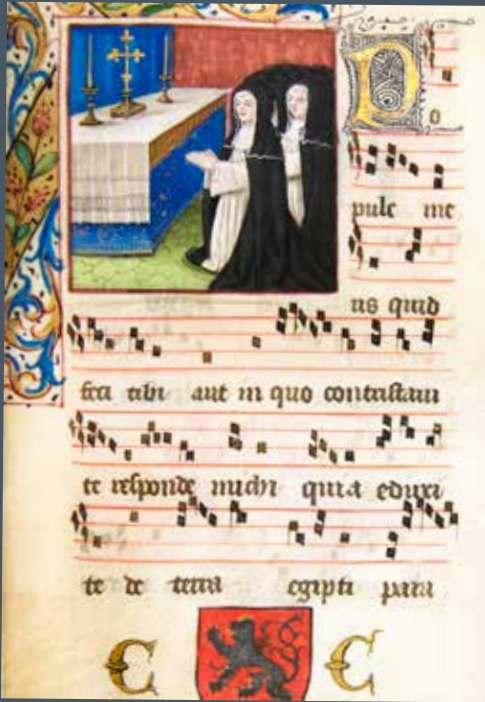 Po
pule me
us quid
feci tibi aut in quo contristavi
te responde michi quia eduxi
te de terra egipti para
C C